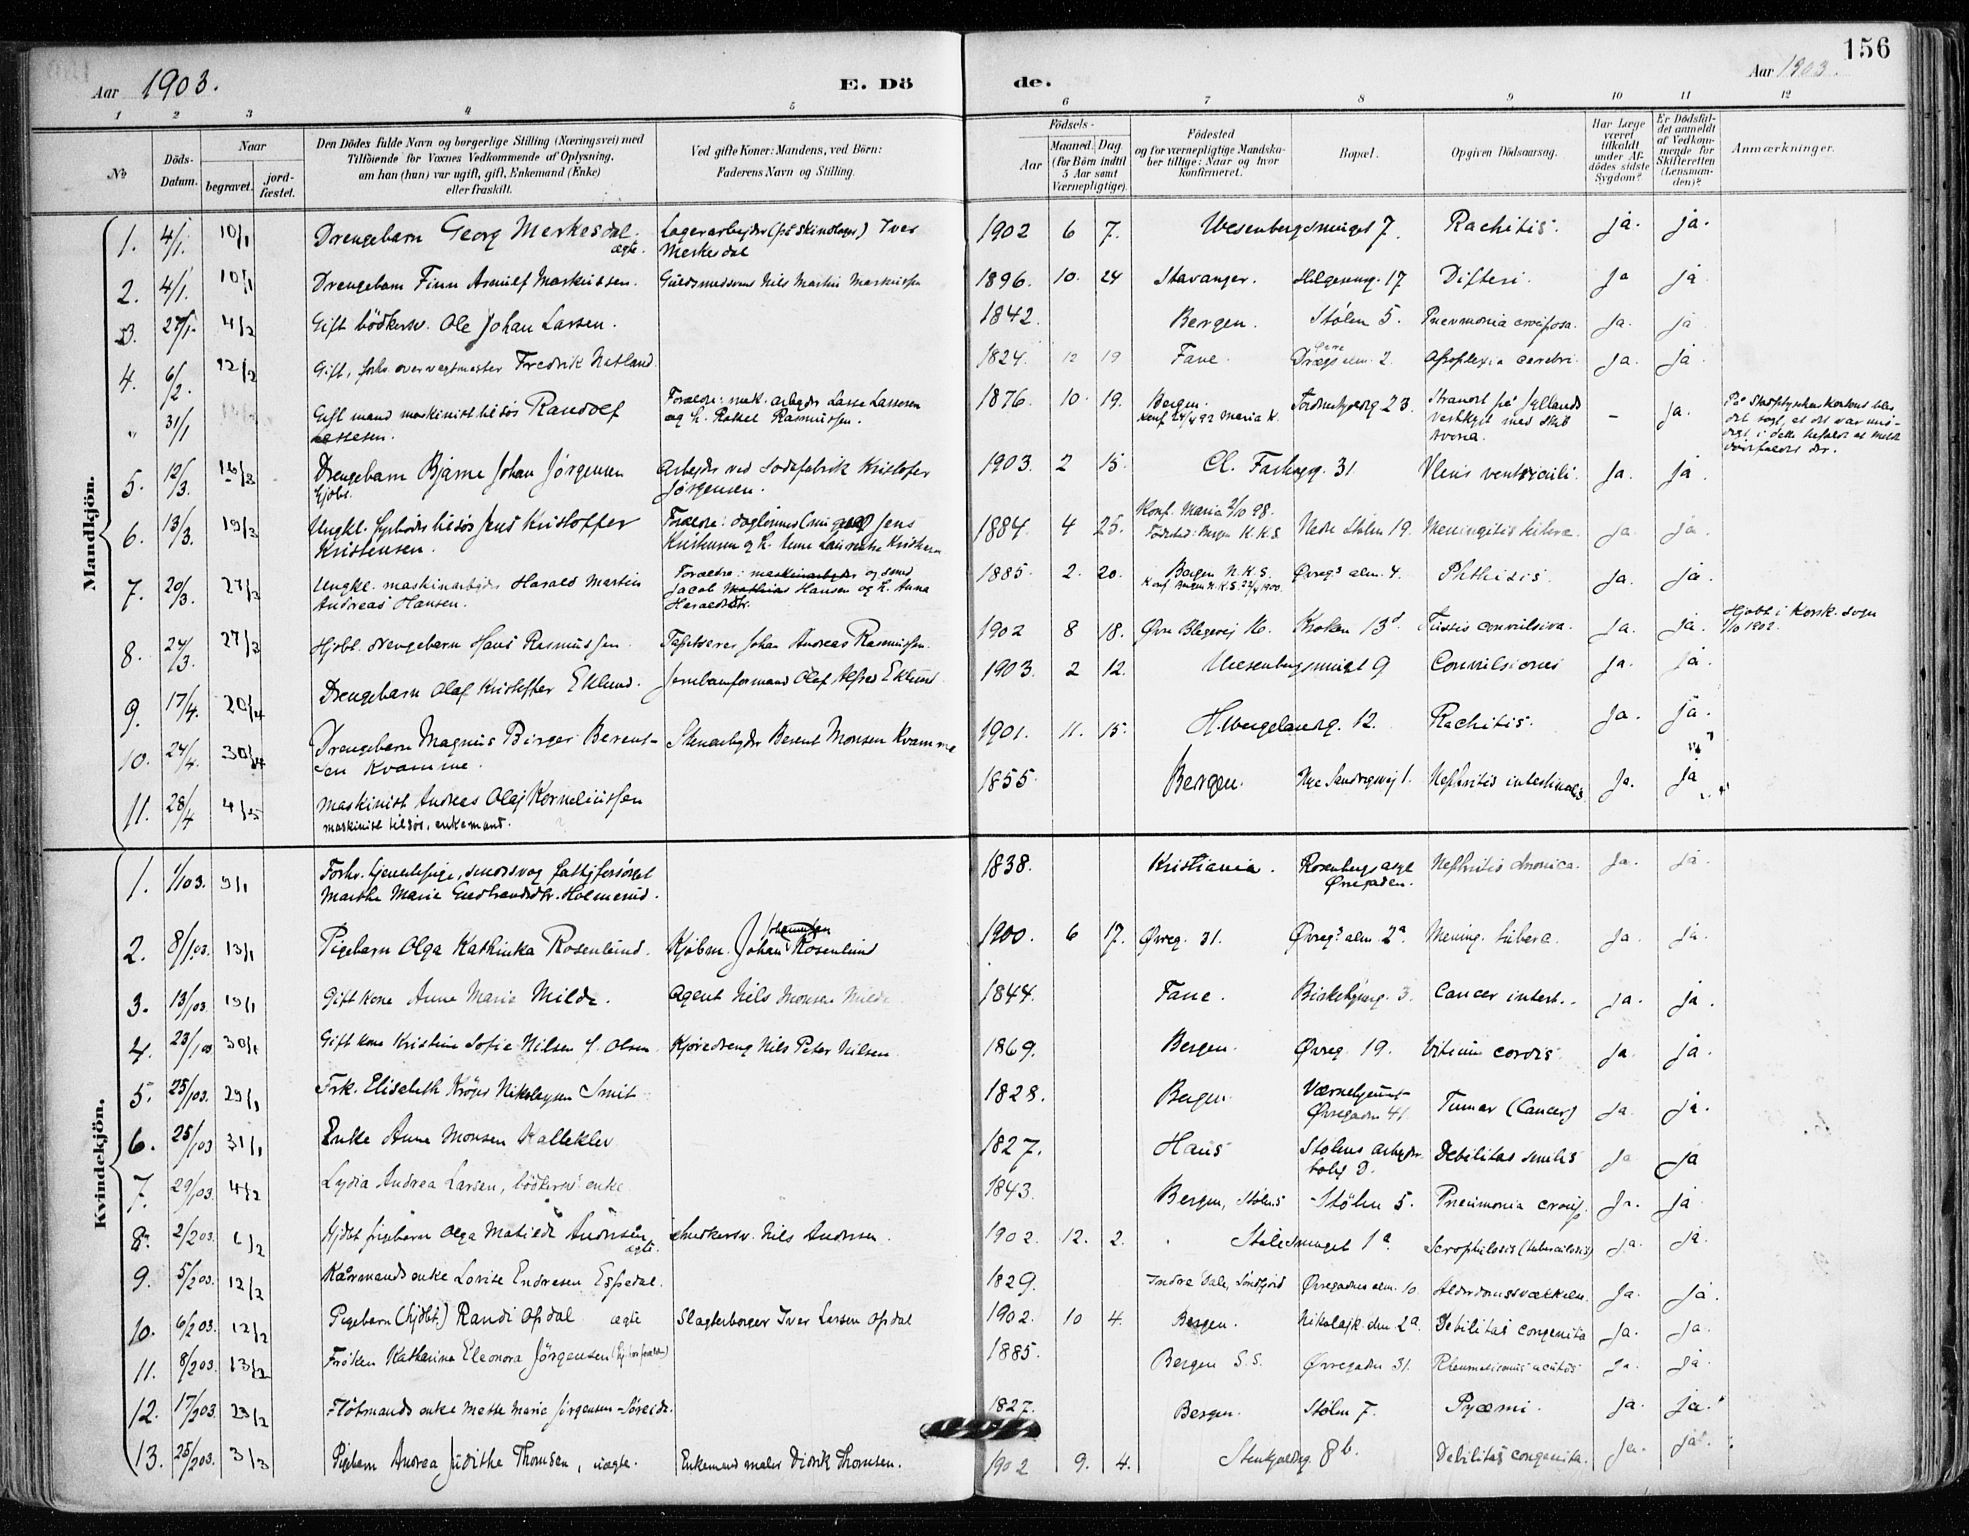 156
Aar 1903. E. Dö de. Aar 1903.
1 2 3 4 5 6 7 8 9 10 11 12
No
Döds-Datum.
Naar
begravet.
jord-fæstet.
Den Dödes fulde Navn og borgerlige Stilling (Næringsvei) med
Tilföiende for Voxnes Vedkommende af Oplysning,
om han (hun) var ugift, gift, Enkemand (Enke)
eller fraskilt.
Ved gifte Koner: Mandens, ved Börn:
Faderens Navn og Stilling.
Födsels-
Aar
Maaned. Dag
(for Börn indtil
5 Aar samt
Værnepligtige).
Födested
og for værnepligtige Mandska-
ber tillige: Naar og hvor
konfirmeret.
Bopæl.
Opgiven Dödsaarsag.
Har Læge
været
tilkaldt
under Af-
dödes sidste
Sygdom?
Er Dödsfal-
det anmeldt
af Vedkom-
mende for
Skifteretten
(Lensman-
den)?
Anmærkninger.
Mandkjön.
1. 4/1. 10/1 Drengebarn Georg Merkesdal. ægte. Lagerarbejder (på skindlager) Iver Merkesdal 1902 6 7. Wesenbergsmuget 7. Rachitis. ja. ja.
2. 4/1. 10/1 Drengebarn Finn Arnulf Markussen. Guldsmedsvend Nils Martin Markussen 1896. 10. 24 Stavanger. Helgesensg. 17 Difteri. ja ja
3. 27/1. 4/2 Gift bödkersv. Ole Johan Larsen. 1842. Bergen. Stölen 5. Pneumonia crouposa. ja. ja
4. 6/2. 12/2 Gift, forhv. overvegtmester Fredrik Natland 1824. 12 19 Fane. 2. Apoplexia cerebri. ja. ja.
" 31/1 Gift mand maskinist tilsös Randolf Lassesen. Forældre: mask. arbejder Lasse Lassesen og h. Rakel Rasmussen. 1876. 10. 19. Bergen. Konf. 24/4 92 Maria K. 23. Strandet på Jyllands vestkyst med skib - ja.
5. 12/3. 16/3 Drengebarn Bjarne Johan Jörgensen hjdbt. Arbejder ved sodafabrik Kristofer Jörgensen. 1903. 2 15. Cl. 31. Ulcus ventriculi. ja. ja
6. 13/3. 19/3 Ungkl. fyrböder tilsös Jens Kristoffer Kristensen. Forældre: daglönner Jens Kristensen og h. Anne Laurentse Kristensen 1884 4 25. Konf. Maria 2/10 98. Födested: Bergen K.K.S. Nedre Stölen 19. Meningitis tuberc. ja. ja.
7. 20/3. 27/3 Ungkl. maskinarbejder Harald Martin Andreas Hansen. Forældre: maskinarbejder og smed Jacob Mathias Hansen og h. Anna Haraldsdtr. 1885. 2. 20. Bergen N.K.S. Konf. Bergen N.K.S. 22/4 1900. Övregs alm. 4. Phthisis. ja. ja.
8. 24/3. 27/3 Hjdbt. drengebarn Hans Rasmussen. Tapetserer Johan Andreas Rasmussen. 1902 8 18. Övre Blegevej 16. Kroken 13d. Tussis convulsiva. ja. ja. Hjdbt. i Korsk. sogn 1902.
9. 17/4. 20/4 Drengebarn Olaf Kristoffer Eklund. Jernbaneformand Olof Alfred Eklund. 1903. 2 12. Wesenbergsmuget 9 Convulsiones ja. ja.
10. 24/4. 30/4 Drengebarn Magnus Birger Berent-sen Kvamme. Stenarbejder Berent Monsen Kvamme 1901. 11. 15. H. Wergelandsg. 12. Rachitis. ja. ja.
11. 28/4 4/5 Maskinist Andreas Olaj Korneliussen maskinist tilsös, enkemand. 1855. Bergen. Nye Sandvigsvej 1. Nephritis intestinalis ja. ja
Kvindekjön.
1. 1/1 03. 9/1 Forhv. tjenestepige, sindssvag fattigforsörget Marthe Marie Gudbrandsdtr. Holmerud. 1838. Kristiania. Rosenbergs asyl Övregaden. Nephritis chronica. ja. ja.
2. 8/1 03. 13/1 Pigebarn Olga Kathinka Rosenlund. Kjöbm. Johan Johannesen Rosenlund 1900. 6 17. Övreg. 31. Övregs alm. 2a. Mening. tuberc. ja. ja.
3. 13/1 03. 19/1 Gift kone Anne Marie Milde. Agent Nils Monsen Milde 1844. Fane. Birkebeinerg. 3. Cancer intest. ja. ja.
4. 23/1 03 30/1 Gift kone Kristine Sofie Nilsen f. Olsen. Kjöredreng Nils Peter Nilsen. 1869. Bergen. Övreg. 19. Vitium cordis. ja. ja.
5. 25/1 03. 29/1 Frk. Elisabeth Kröger Nikolaysen Smit 1828. Bergen. Værnehjemmet Övregaden 41. Tumor (Cancer) ja. ja.
6. 25/1 03 31/1 Enke Anne Monsen Kalleklev 1827. Haus Stölens arbejder bolig D. Debilitas senilis ja ja
7. 29/1 03. 4/2 Lydia Andrea Larsen, bödkersv. enke. 1843. Bergen, Stölens Stölen 5. Pneumonia croup. ja. ja
8. 2/2 03. 6/2 Hjdbt pigebarn Olga Matilde Andersen ægte. Snedkersv. Nils Andersen. 1902. 12. 2. Stölesmuget 1a. Scrophulosis (tuberculosis) ja. ja.
9. 5/2 03. 12/2 Kårmands enke Lovise Endresen Espedal. 1829. Indre Dale, Söndfjord Övregadens alm. 10 Alderdomssvækkelse. ja. ja.
10. 6/2 03. 12/2 Pigebarn (hjdbt.) Randi Opdal ægte Slagterborger Iver Larsen Opdal 1902. 10 4. Bergen. Nikolajk. alm 2a. Debilitas congenita ja. ja.
11. 8/2 03. 13/2 Fröken Katharina Eleonora Jörgensen 1885. Bergen S.S. Övregaden 31. Rheumatismus acutus ja. ja.
12. 17/2 03. 23/2 Flötmands enke Mette Marie Jörgensen-Söreide. 1827. Bergen. Stölen 7. Pyæmi. ja. ja.
13. 25/2 03. 3/3 Pigebarn Andrea Judithe Thomsen, uægte. Enkemand maler Didrik Thomsen. 1902 9. 4. Stenkjeldrg. 8b. Debilitas congenita. ja. ja.